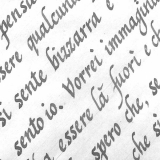 pensie
ssere qualcun
si sente bizzarra e
sento io. Vorrei immagin
essere là fuori e d
spero che, se
che